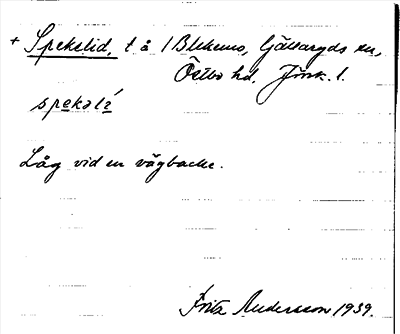 + Spekelid, t å 1 Blekemo, Gällaryds sn,
Östbo hd. Jönk. l.
spekəlí
Låg vid en vägbacke.
Fritz Andersson 1939.